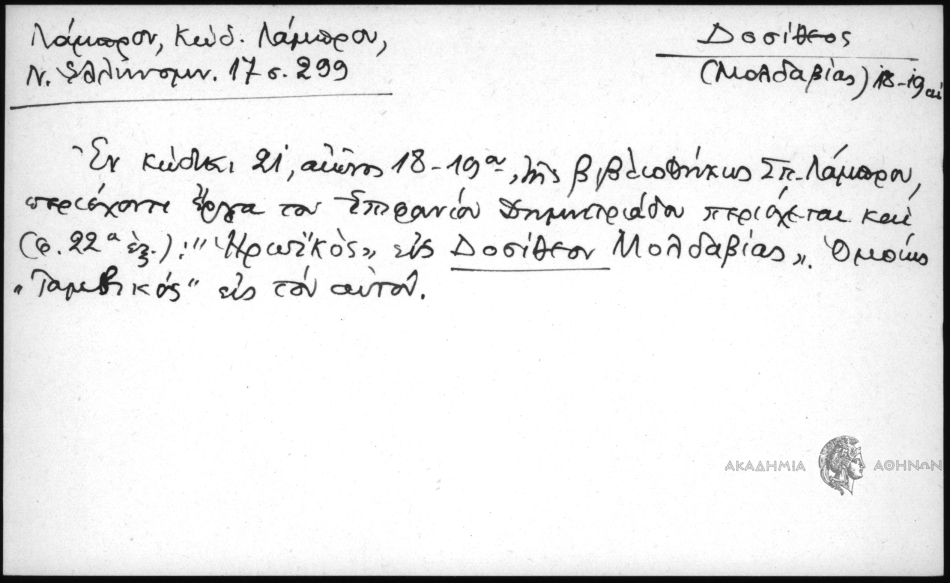 Λάμπρου, Κώδ. Λάμπρου,
Ν. Ἑλληνομν. 17 σ. 299
Δοσίθεος
(Μολδαβίας) 18-19 αἰ
Ἐν κώδικι 21, αἰῶνος 18-19ου, τῆς βιβλιοθήκης Σπ. Λάμπρου,
περιέχοντι ἔργα τοῦ Ἐπιφανίου Δημητριάδου περιέχεται καὶ
(φ. 22α ἑξ.) : "Ἡρωϊκὸς», εἰς Δοσίθεον Μολδαβίας». Ὁμοίως
„Ἰαμβικός" εἰς τὸν αὐτόν.
ΑΚΑΔΗΜΙΑ ΑΘΗΝΩΝ